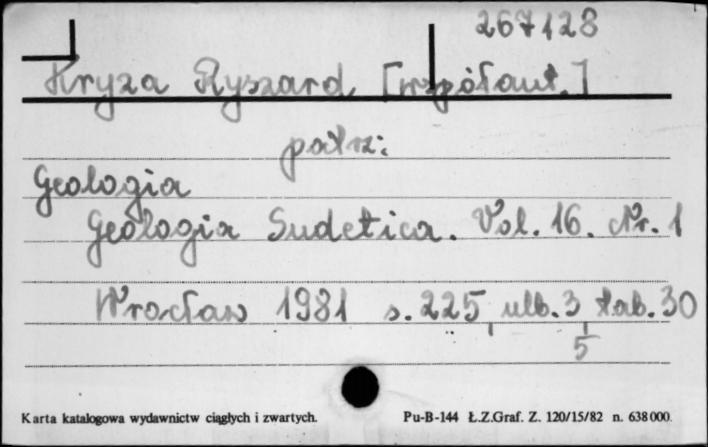 267128
Kryza Ryszard [współaut.]
patrz:
Geologia
Geologia Sudetica. Vol. 16. Nr. 1
Wrocław 1981 s. 225, ulb. 3, tab. 30
5
Karta katalogowa wydawnictw ciągłych i zwartych. Pu-B-144 Ł.Z.Graf. Z. 120/15/82 n. 638000.